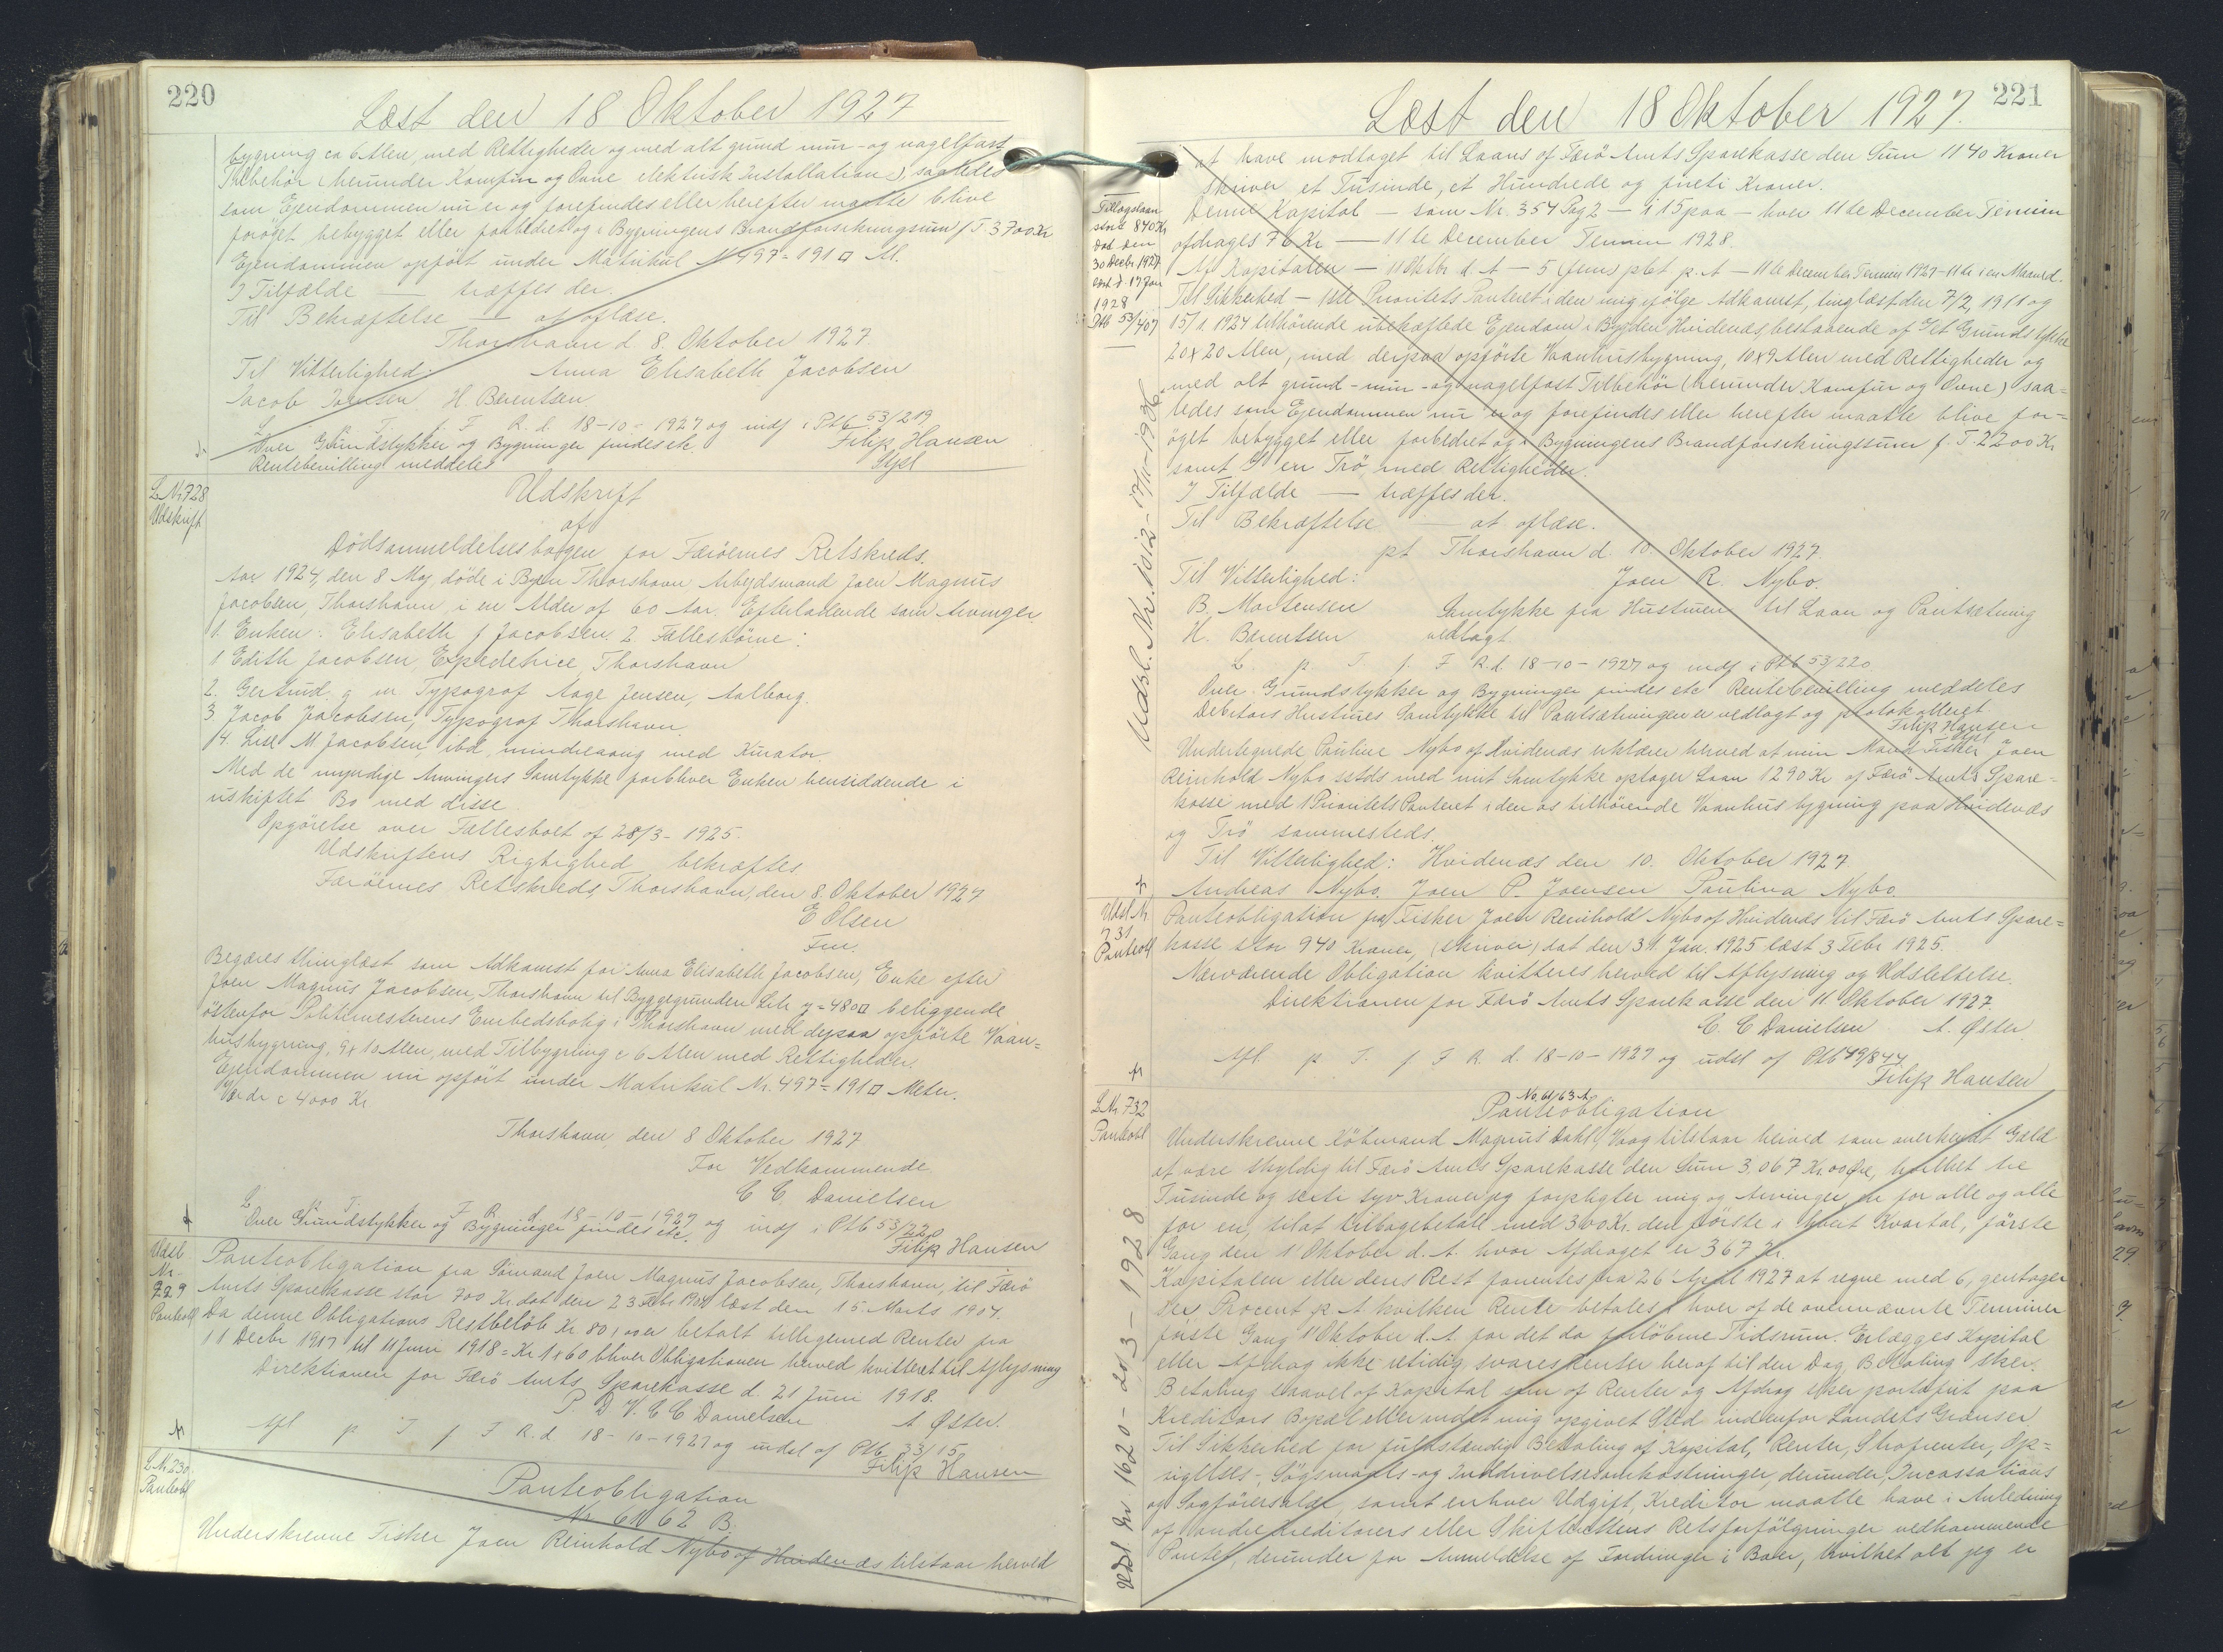 220
Læst den 18 Oktober 1927
bygning ca 6 Alen, med Rettigheder og med alt grund mur- og nagelfast
Tilbehör (herunder Komfur og Ovne elektrisk Installation) saaledes
som Ejendommen nu er og forefindes eller herefter maatte blive
forøget bebygget eller forbedret og i Bygningens Brandforsikringssum f T 3700 Kr
Ejendommen opfört under Matrikul N 497 = 191 □ M.
I Tilfælde — træffes der.
Til Bekræftelse — at aflæse.
Thorshavn d. 8. Oktober 1927.
Til Vitterlighed: Anna Elisabeth Jacobsen
Jacob Joensen H. Berentsen
L p. T. f. F R. d. 18-10-1927 og indf i Ptb 53/219
Over Grundstykker og Bygninger findes etc. Filip Hansen
Rentebevilling meddeles Stfkl
L Nr 728
Udskrift
Udskrift
af
Dödsanmeldelsesbogen for Færöernes Retskreds.
Aar 1924, den 8 Maj, döde i Byen Thorshavn Arbejdsmand Joen Magnus
Jacobsen, Thorshavn, i en Alder af 60 Aar. Efterladende som Arvinger
1. Enken: Elisabeth f Jacobsen. 2 Fællesbörne:
1 Edith Jacobsen, Expeditrice Thorshavn
2. Gertrud g m Typograf Aage Jensen, Aalborg.
3. Jacob Jacobsen, Typograf Thorshavn.
4. Lisl M Jacobsen, ibd, mindreaarig med Kurator.
Med de myndige Arvingers Samtykke forbliver Enken hensiddende i
uskiftet Bo med disse.
Opgörelse over Fællesboet af 28/3-1925.
Udskriftens Rigtighed bekræftes
Færöernes Retskreds, Thorshavn, den 8. Oktober 1927
E Olsen
Fm.
Begæres thinglæst som Adkomst for Anna Elisabeth Jacobsen, Enke efter
Joen Magnus Jacobsen, Thorshavn til Byggegrunden Litr y = 480 □ beliggende
östenfor Politimesterens Embedsbolig i Thorshavn med derpaa opförte Vaan=
husbygning, 9 x 10 Alen, med Tilbygning c 6 Alen med Rettigheder.
Ejendommen nu opfört under Matrikul Nr. 497 = 191 □ Meter.
Værdi c 4000 Kr
Thorshavn den 8 Oktober 1927
For Vedkommende
C C Danielsen
L p T f F R d 18-10-1927 og indf i Ptb 53/220
Over Grundstykker og Bygninger findes etc. Filip Hansen
Udsl
Nr.
729
Panteobl
Panteobligation fra Sömand Joen Magnus Jacobsen, Thorshavn, til Færö
Amts Sparekasse stor 700 Kr dat den 23 Febr 1904 læst den 15 Marts 1904.
Da denne Obligations Restbelöb Kr 80, er betalt tilligemed Renter fra
11 Decbr 1917 til 11 Juni 1918 = Kr 1 x 60 bliver Obligationen herved kvitteret til Aflysning
Direktionen for Færö Amts Sparekasse d. 21 Juni 1918.
P. D V. C C Danielsen A Øster.
Afl p T f F R. d. 18-10-1927 og udsl af Ptb 33/15
Filip Hansen
L Nr 730
Panteobl
Panteobligation
Nr 61 62 B.
Underskrevne Fisker Joen Reinhold Nybo af Hvidenæs tilstaar herved
221
Læst den 18 Oktober 1927.
at have modtaget til Laans af Færö Amts Sparekasse den Sum 1140 Kroner
skriver et Tusinde, et Hundrede og fireti Kroner.
Denne Kapital — som Nr. 354 Pag 2 — i 15 paa — hver 11te December Termin
afdrages 76 Kr — 11te December Termin 1928.
Af Kapitalen — 11 Oktbr d. A — 5 (fem) pCt p. A — 11te December Termin 1927 - 11te i en Maaned.
Til Sikkerhed — 1ste Prioritets Panteret i den mig ifölge Adkomst, tinglæst den 7/2, 1911 og
15/1. 1924 tilhörende ubehæftede Ejendom i Bygden Hvidenæs, bestaaende af 1 et Grundstykke
20 x 20 Alen, med derpaa opförte Vaanhusbygning, 10 x 9 Alen med Rettigheder og
med alt grund- mur- og nagelfast Tilbehör (herunder Komfur og Ovne) saa=
ledes som Ejendommen nu er og forefindes eller herefter maatte blive for=
öget bebygget eller forbedret og i Bygningens Brandforsikringssum f. T. 2200 Kr
samt 2 en Trö, med Rettigheder.
I Tilfælde — træffes der.
Til Bekræftelse — at aflæse.
pt Thorshavn d. 10. Oktober 1927.
Til Vitterlighed: Joen R. Nybo.
B. Mortensen Samtykke fra Hustruen til Laan og Pantsætning
H. Berentsen vedlagt
L. p. T. f. F R. d. 18-10-1927 og indf i Ptb 53/220
Over Grundstykker og Bygninger findes etc Rentebevilling meddeles
Debitors Hustrues Samtykke til Pantsætningen er vedlagt og protokolleret
Filip Hansen
Stfkl
Undertegnede Pauline Nybo af Hvidenæs erklærer herved at min Mand Fisker Joen
Reinhold Nybo sstds med mit Samtykke optager Laan 1290 Kr af Færö Amts Spare=
kasse med 1 Prioritets Panteret i den os tilhörende Vaanhusbygning paa Hvidenæs
og Trö sammesteds.
Til Vitterlighed: Hvidenæs den 10. Oktober 1927
Andreas Nybo. Joen P. Joensen Paulina Nybo
Tillægslaan
stort 840 Kr
Dat den
30 Decbr 1927
læst d 17 Jan
1928
Ptb 53/407
Udsl. Nr. 1012 - 17/11-1936.
Udsl Nr.
731
Panteobl
Panteobligation fra Fisker Joen Reinhold Nybo af Hvidenæs til Færö Amts Spare=
kasse stor 940 Kroner, (skriver) dat den 31. Jan. 1925 læst 3 Febr 1925.
Nærværende Obligation kvitteres herved til Aflysning og Udslettelse.
Direktionen for Færö Amts Sparekasse den 11. Oktober 1927.
C. C Danielsen A. Øster
Afl p T. f F R. d. 18-10-1927 og udsl af Ptb 49/844
Filip Hansen
L Nr. 732
Panteobl
No. 61/63 A.
Panteobligation
Underskrevne Köbmand Magnus Dahl, Vaag tilstaar herved som anerkendt Gæld
at være skyldig til Færö Amts Sparekasse den Sum 3.067 Kr. 00 Øre, hvilket tre
Tusinde og seксti syv Kroner jeg forpligter mig og Arvinger, en for alle og alle
for en, til at tilbagebetale med 300 Kr. den förste i hvert Kvartal, förste
Gang den 1' Oktober d. A. hvor Afdraget er 367 Kr.
Kapitalen eller dens Rest forrentes fra 26' April 1927 at regne med 6, gentager
sex Procent p. A hvilken Rente betales i hver af de ovennævnte Terminer
förste Gang 1' Oktober d. A. for det da forlöbne Tidsrum. Erlægges Kapital
eller Afdrag ikke retidig, svares Renter heraf til den Dag Betaling sker.
Betaling saavel af Kapital som af Renter og Afdrag sker portofrit paa
Kreditors Bopæl eller andet mig opgivet Sted indenfor Landets Grænser.
Til Sikkerhed for fuldstændig Betaling af Kapital, Renter, Strafrenter, Op=
sigelses-, Sögsmaals- og Inddrivelsesomkostninger, derunder, Incassations
og Sagförersalær, samt enhver Udgift, Kreditor maatte have i Anledning
af andre Kreditorers eller Skifterettens Retsforfölgninger vedkommende
Pantet, derunder for Anmeldelse af Fordringer i Boer, hvilket alt jeg er
Udsl Nr 1620 - 20/3 - 1928